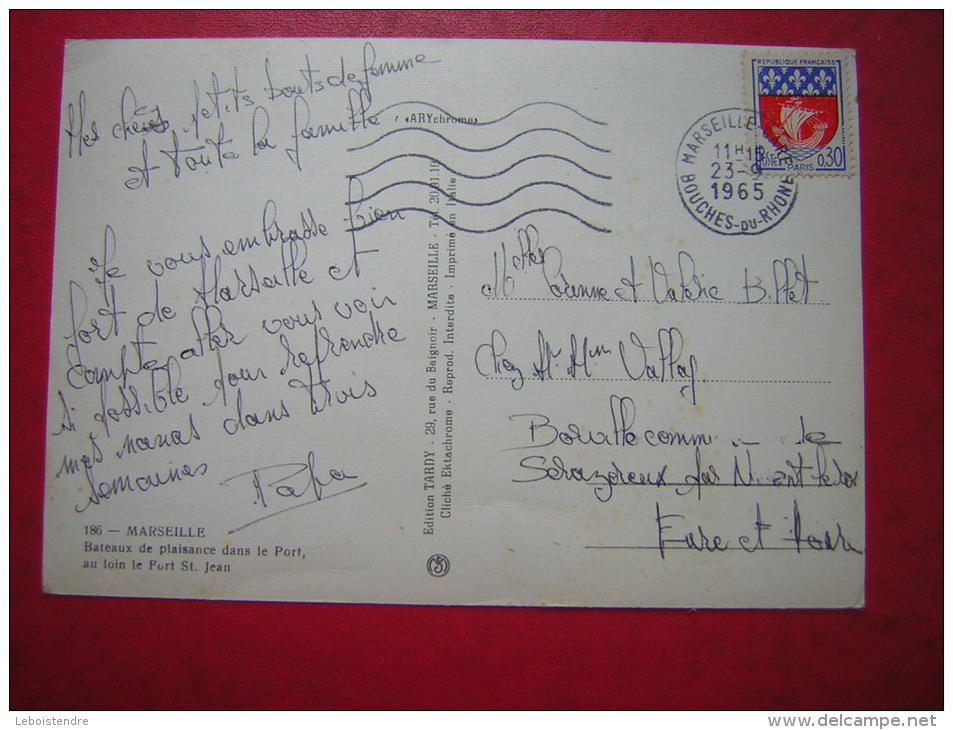 Mes chères petits bouts de femme
et toute la famille
Je vous embrasse bien
fort de Marseille et
compte aller vous voir
si possible pour reprendre
mes nanas dans trois
semaines
Papa
186 — MARSEILLE
Bateaux de plaisance dans le Port,
au loin le Fort St. Jean
«ARYchrome»
Edition TARDY - 29, rue du Baignoir - MARSEILLE - Tél. 20.91.19
Cliché Ektachrome - Reprod. Interdite - Imprimé en Italie
REPUBLIQUE FRANÇAISE
POSTES
PARIS
0,30
MARSEILLE GARE
11H15
23-9
1965
BOUCHES-DU-RHONE
Melles et Valérie Billet
Chez Mr Mme Vallay
Bouville comm de
Serazereux par
Eure et Loir
Leboistendre
www.delcampe.net